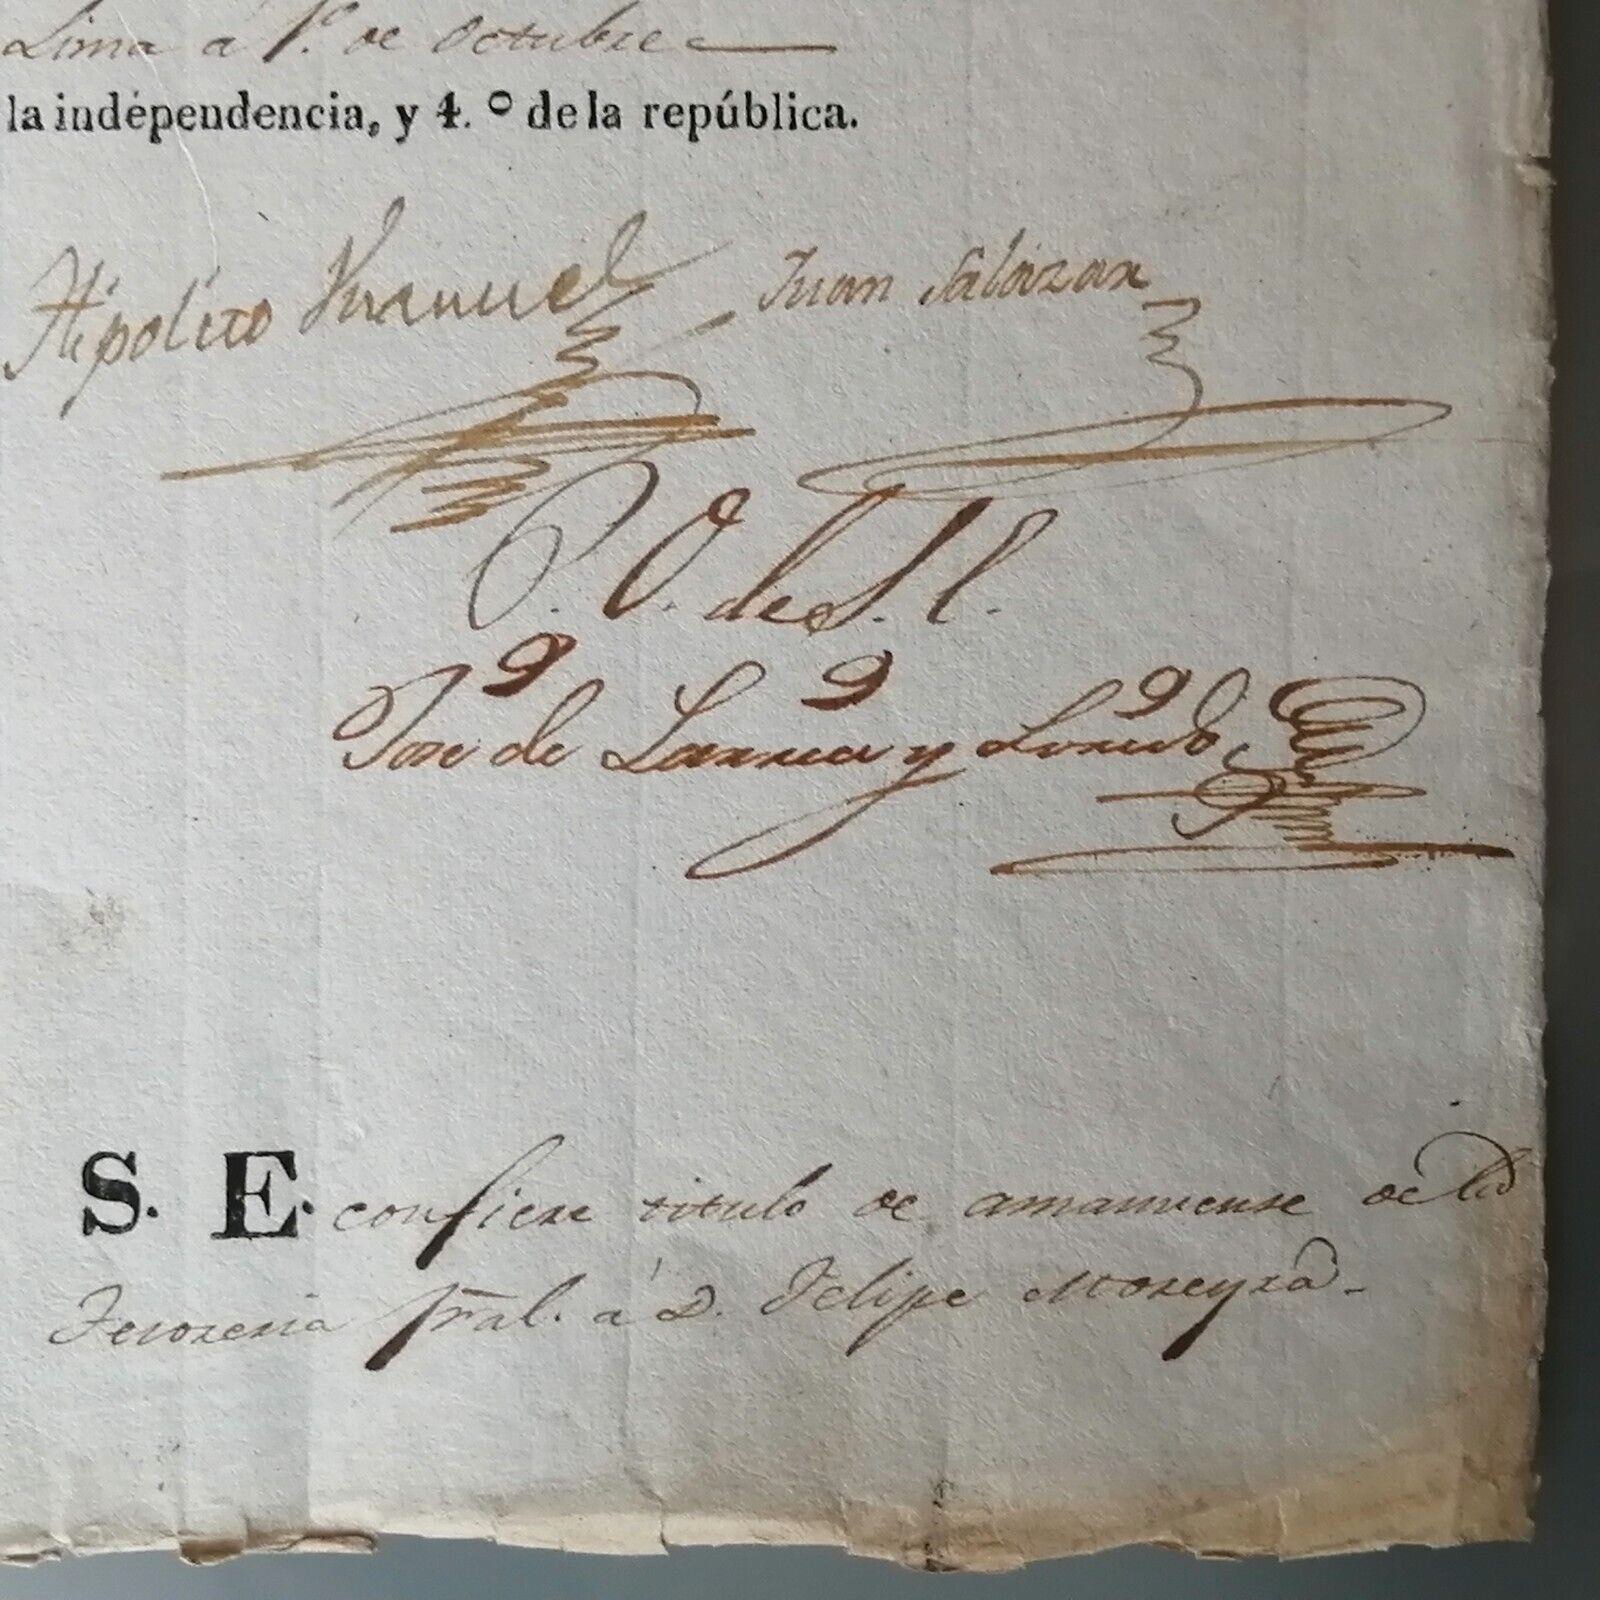 Lima á 1.º de Octubre
la independencia, y 4.º de la república.
Hipolito Vnanue Juan Salazar
P. O. de S. E.
Jose de Larrea y Loredo
S. E. confiere titulo de amanuense de la
Tesoreria gral. á D. Felipe Moreyra